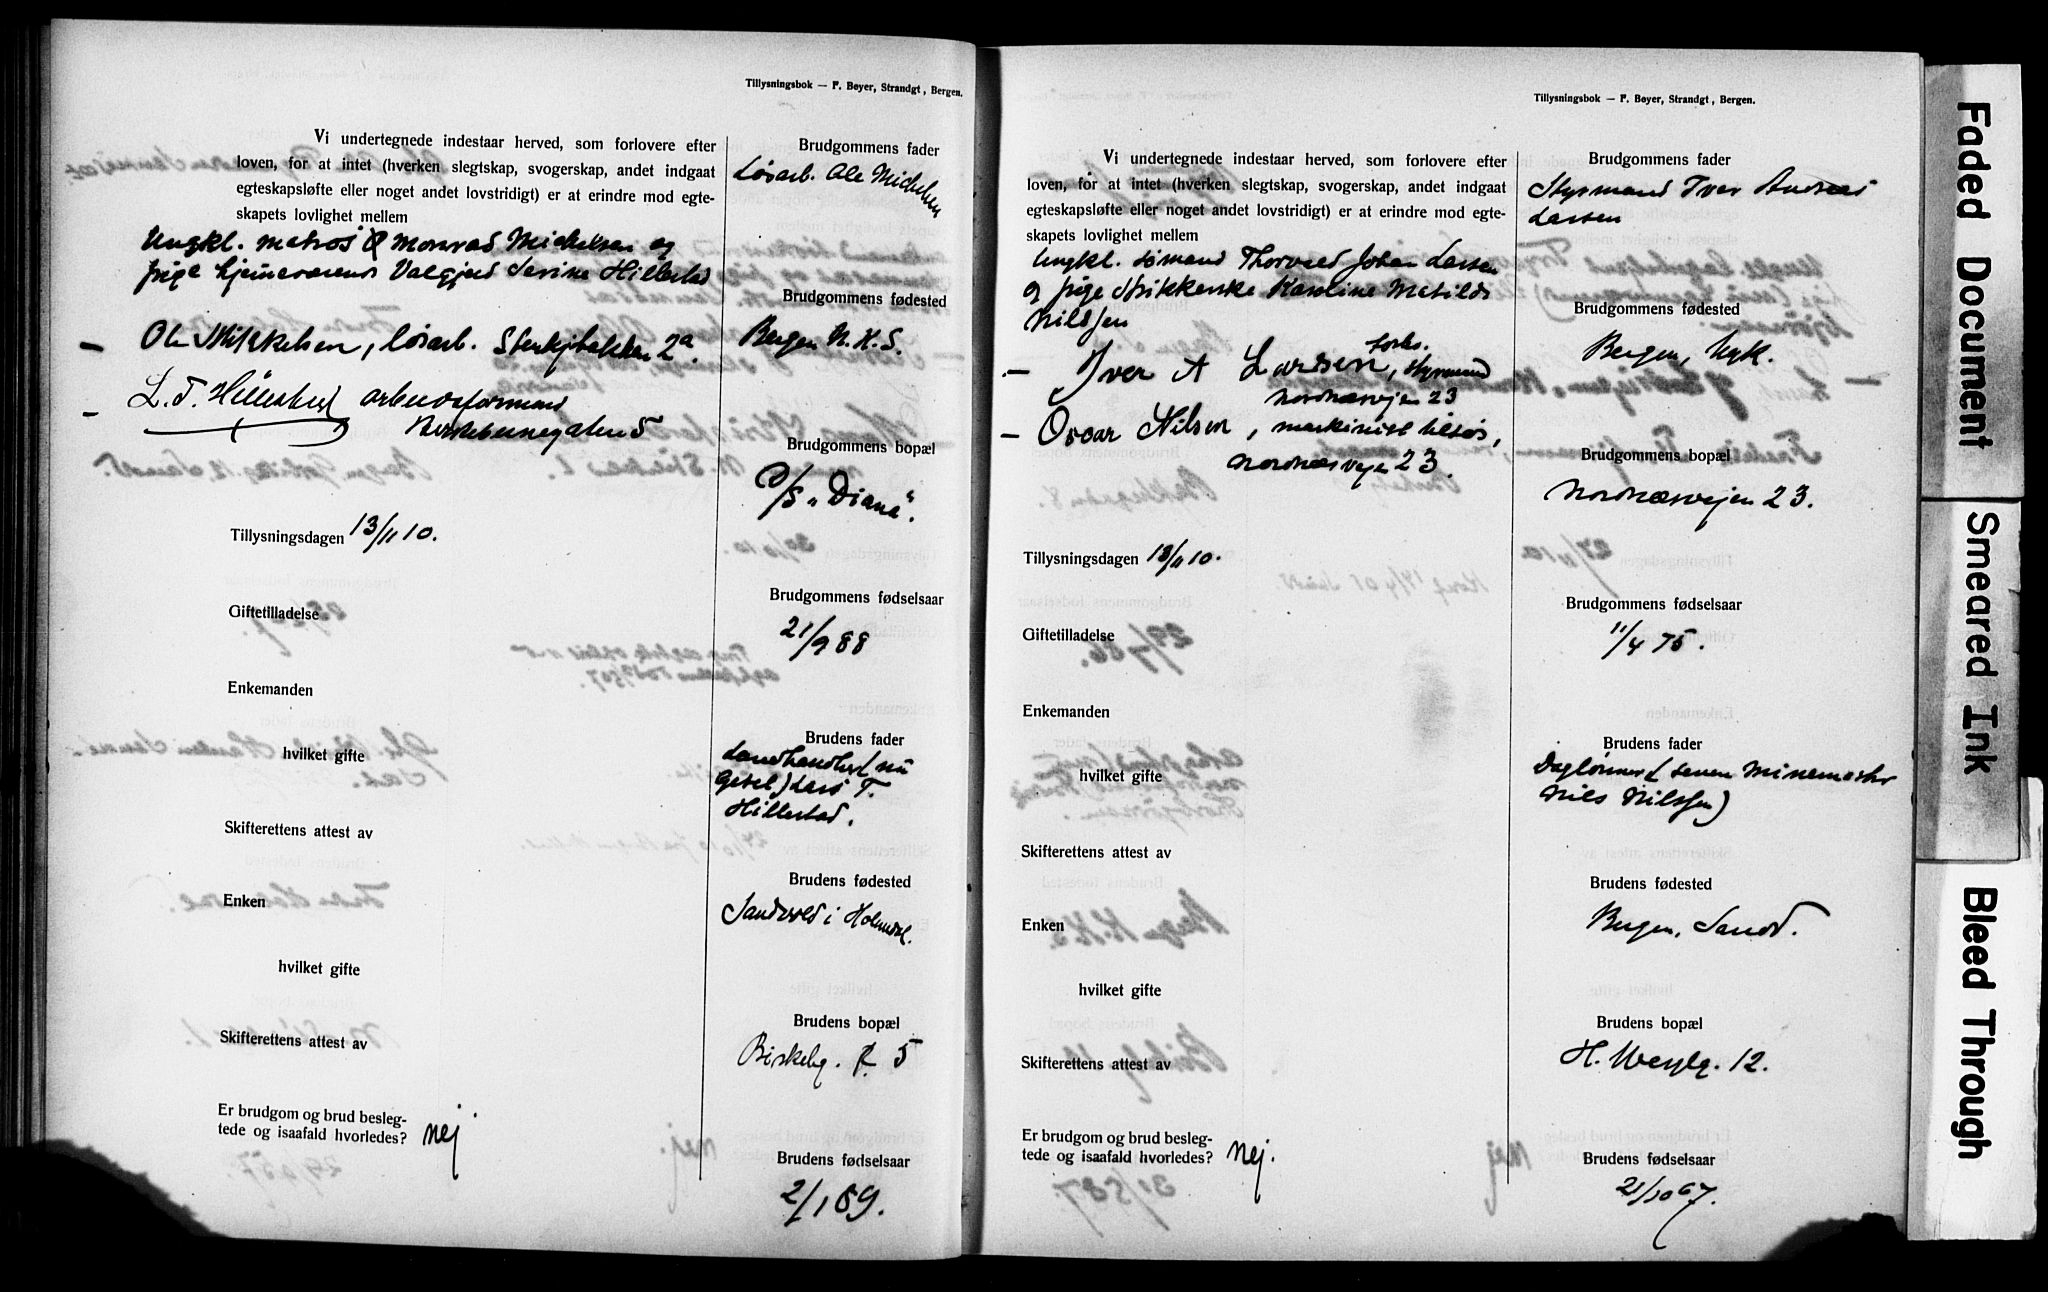 Tillysningsbok — F. Bøyer, Strandgt, Bergen.
Vi undertegnede indestaar herved, som forlovere efter
loven, for at intet (hverken slegtskap, svogerskap, andet indgaat
egteskapsløfte eller noget andet lovstridigt) er at erindre mod egte-
skapets lovlighet mellem
Ungkl. matros Monrad Mickelsen og
pige hjemmeværende Valgjerd Serine Hillestad
Ole Mikkelsen, løsarb. 2a
L. T. Hillestad arbeidsformand
Birkebeinergaten 5
Tillysningsdagen 13/11 10.
Giftetilladelse
Enkemanden
hvilket gifte
Skifterettens attest av
Enken
hvilket gifte
Skifterettens attest av
Er brudgom og brud besleg-
tede og isaafald hvorledes? nej
Brudgommens fader
Løsarb. Ole Mickelsen
Brudgommens fødested
Bergen N.K.S.
Brudgommens bopæl
D/S „Diana“.
Brudgommens fødselsaar
21/9 88
Brudens fader
Landhandler (nu
) Lars T.
Hillestad.
Brudens fødested
Sandvold i
Brudens bopæl
Birkebg. 5
Brudens fødselsaar
2/1 89.
Tillysningsbok — F. Bøyer, Strandgt, Bergen.
Vi undertegnede indestaar herved, som forlovere efter
loven, for at intet (hverken slegtskap, svogerskap, andet indgaat
egteskapsløfte eller noget andet lovstridigt) er at erindre mod egte-
skapets lovlighet mellem
Ungkl. sømand Thorvald Johan Larsen
og pige strikkerske Karoline Matilde
Nilssen
Iver A Larsen, forhv. styrmand
Nordnæsvejen 23
Oscar Nilsen, maskinist tilsøs,
Nordnæsvejen 23.
Tillysningsdagen 13/11 10.
Giftetilladelse
Enkemanden
hvilket gifte
Skifterettens attest av
Enken
hvilket gifte
Skifterettens attest av
Er brudgom og brud besleg-
tede og isaafald hvorledes? nej.
Brudgommens fader
Styrmand Iver Andreas
Larsen
Brudgommens fødested
Bergen, Nyk.
Brudgommens bopæl
Nordnæsvejen 23.
Brudgommens fødselsaar
11/4 75.
Brudens fader
Daglønner (senere Minemester
Nils Nilssen)
Brudens fødested
Bergen, Sandv.
Brudens bopæl
H. Wesselg. 12.
Brudens fødselsaar
21/10 67.
Faded Document
Smeared Ink
Bleed Through